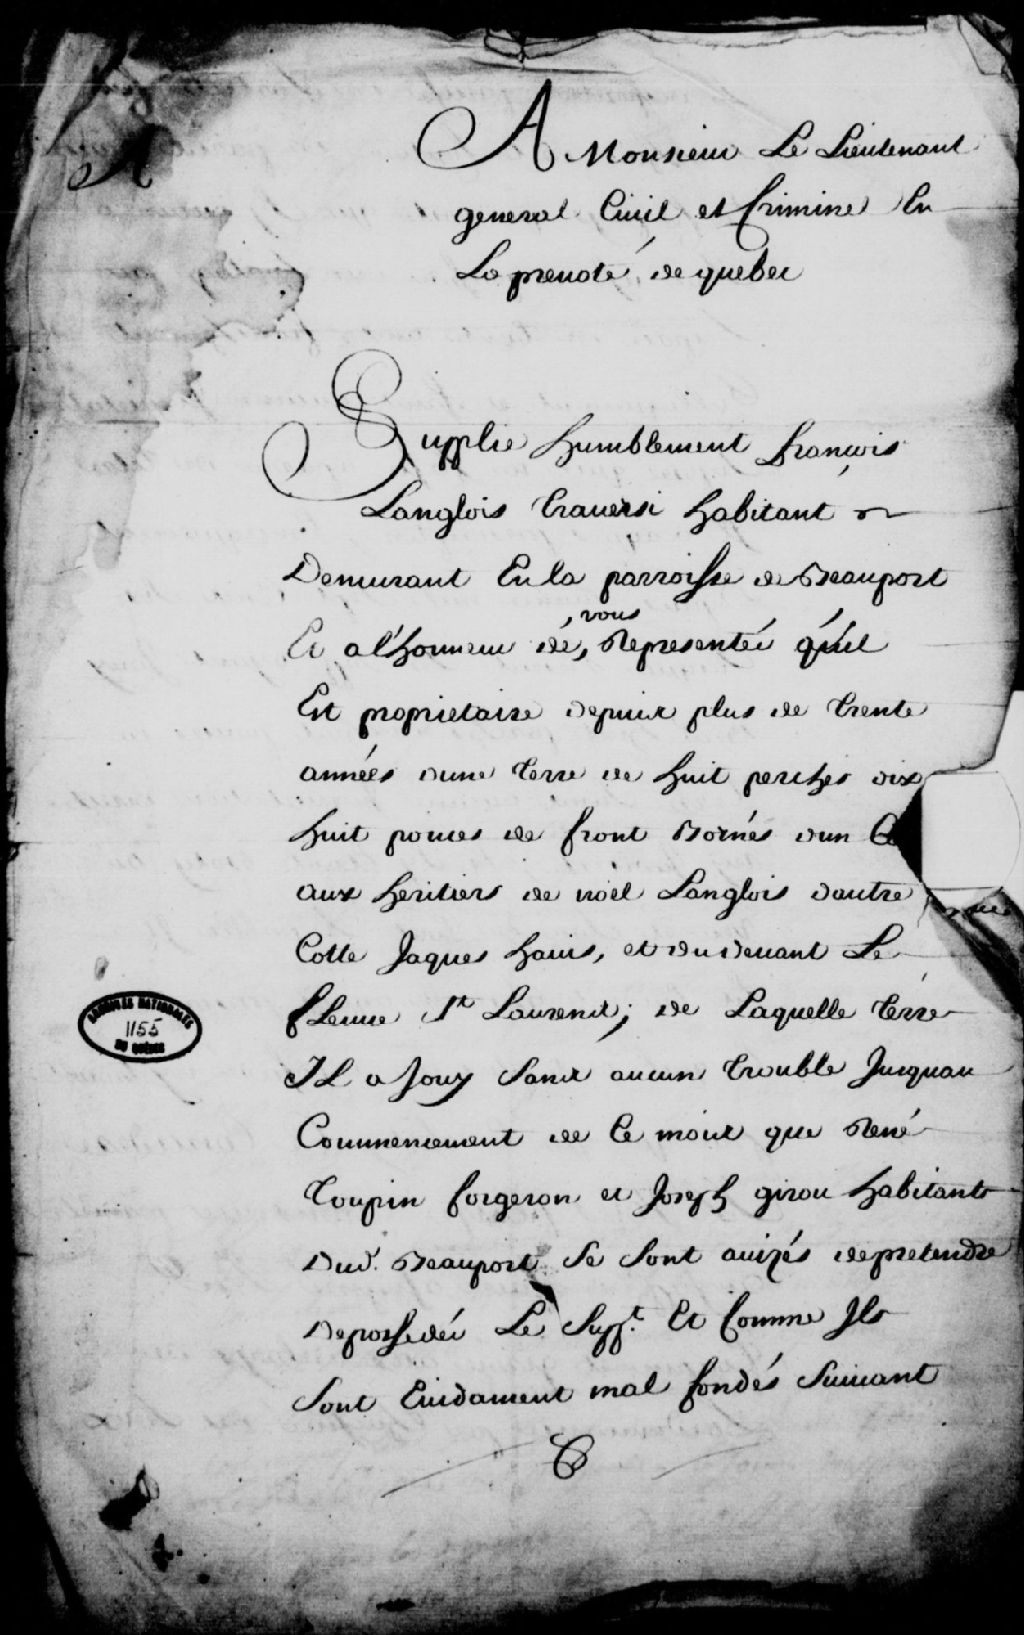 A Monsieur Le Lieutenant
general Civil et Crimine En
La prevoté de quebec
Supplie humblement françois
Langlois traversi habitant
Demurant En la parroisse de Beauport
Et a l'honneur de, vous Representéé qu'il
Est proprietaire depuix plus de trente
années dune terre de huit perches dix
huit pouces de front Bornés dun
aux heritiers de noël Langlois dautre
Cotte Jaques havis, et du devant Le
fleuve St Laurent; de Laquelle terre
IL a Jouy Sanx aucun trouble Jusquau
Commencement de Ce moix que René
toupin forgeron et Joseph girou habitants
Dud. Beauport Se Sont avizés de pretendre
Deposseder Le Suppt. Et Comme Ils
Sont Evidament mal fondés Suivant
ARCHIVES NATIONALES
1155
DU QUÉBEC